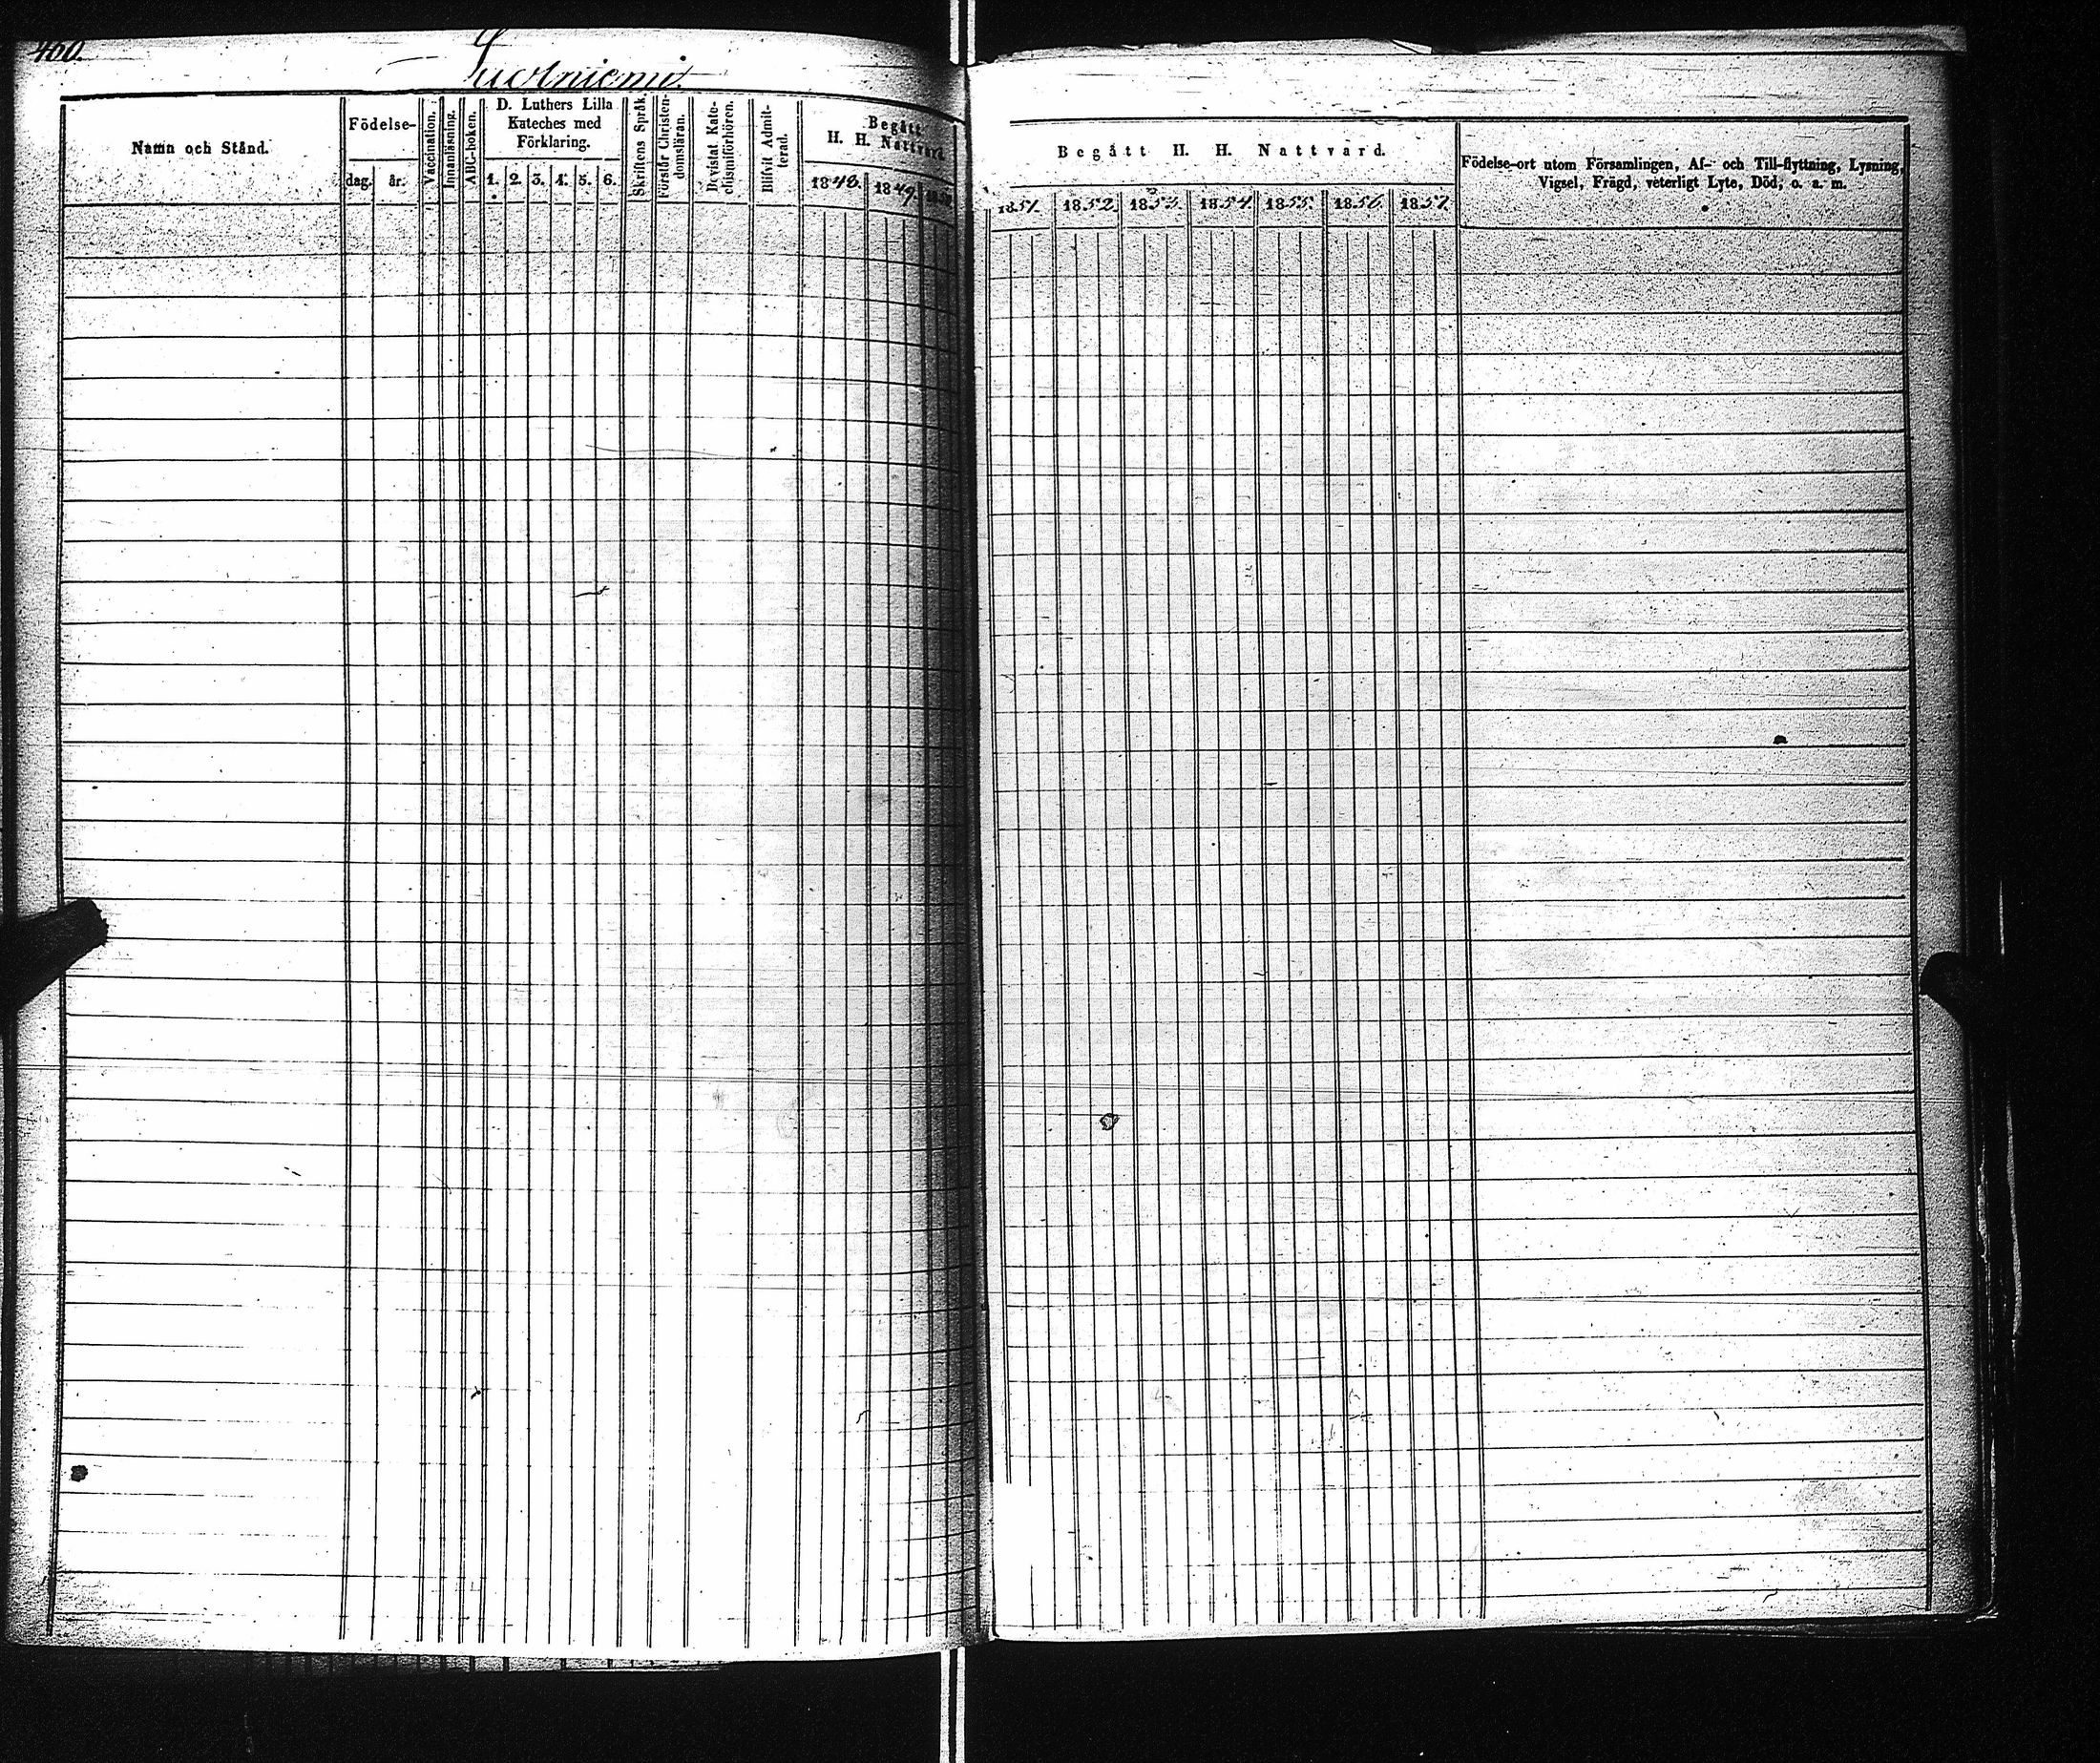 460.
Suotniemi.
Namn och Stånd.
Födelse-
dag.
år.
Vaccination.
Innanläsning.
ABC-boken.
D. Luthers Lilla
Kateches med
Förklaring.
1. 2. 3. 4. 5. 6.
Skriftens Språk.
Förstår Christen-
domsläran.
Bevistat Kate-
chismiförhören.
Blifvit Admit-
terad.
Begått
H. H. Nattvard.
1848. 1849. 1850.
Begått H. H. Nattvard.
1851. 1852. 1853. 1854. 1855. 1856. 1857.
Födelse-ort utom Församlingen, Af- och Till-flyttning, Lysning,
Vigsel, Frägd, veterligt Lyte, Död, o. a. m.